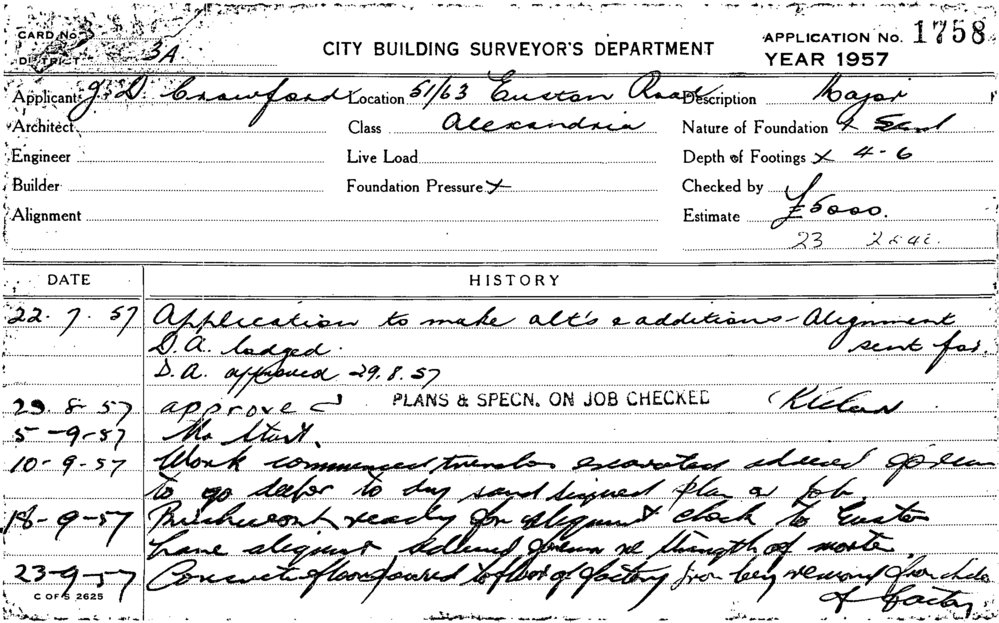 CARD No.
DISTRICT 3A
CITY BUILDING SURVEYOR'S DEPARTMENT
APPLICATION No. 1758
YEAR 1957
Applicant J. D. Crawford Location 51/63 Euston Road Description Major
Architect Class Alexandria Nature of Foundation x Sand
Engineer Live Load Depth of Footings x 4-6
Builder Foundation Pressure x Checked by
Alignment Estimate £5000.
23
DATE HISTORY
22. 7. 57 Application to make alt's & additions - Alignment
D.A. lodged. sent for.
D.A. approved 29.8.57
29. 8. 57 approved PLANS & SPECN. ON JOB CHECKED
5-9-57 No Start.
10-9-57 Work commenced, trenches excavated advised foreman
to go deeper to dry sand signed plan on job
18-9-57 Brickwork ready for alignment check to Euston
Lane alignment, advised foreman re strength of mortar
23-9-57 Concrete floor poured to floor of factory
of factory
C OF S 2625